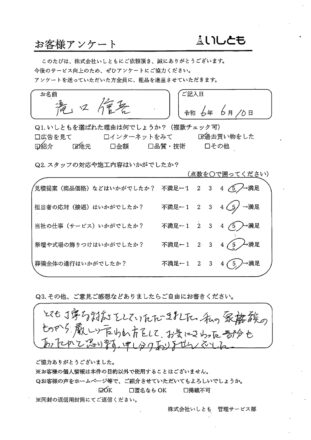 お客様アンケート
いしとも
このたびは、株式会社いしともにご依頼頂き、誠にありがとうございます。
今後のサービス向上のため、ぜひアンケートにご協力ください。
アンケートを送っていただいた方全員に、粗品を進呈させていただきます。
お名前
ご記入日
滝口
令和 6年 6月 10日
Q1.いしともを選ばれた理由は何でしょうか?(複数チェック可)
□広告を見て □インターネットをみて ☑過去買い物をした
☑紹介 ☑地元 □金額 □品質・技術 □その他
Q2.スタッフの対応や施工内容はいかがでしたか?
(点数を○で囲ってください)
見積提案(商品価格)などはいかがでしたか? 不満足←1 2 3 4 5→満足
担当者の応対(接遇)はいかがでしたか? 不満足←1 2 3 4 5→満足
当社の仕事(サービス)いかがでしたか? 不満足←1 2 3 4 5→満足
祭壇や式場の飾りつけはいかがでしたか? 不満足←1 2 3 4 5→満足
葬儀全体の進行はいかがでしたか? 不満足←1 2 3 4 5→満足
Q3.その他、ご意見ご感想などありましたらご自由にお書きください。
とても丁寧な対応をしていただきました。私の家族の
ご協力ありがとうございました。
※お客様の個人情報は本件の目的以外で使用することはございません。
Qお客様の声をホームページ等で、ご紹介させていただいてもよろしいでしょうか。
☑OK □匿名ならOK □掲載不可
※同封の返信用封筒にてご返送ください。
株式会社いしとも 管理サービス部